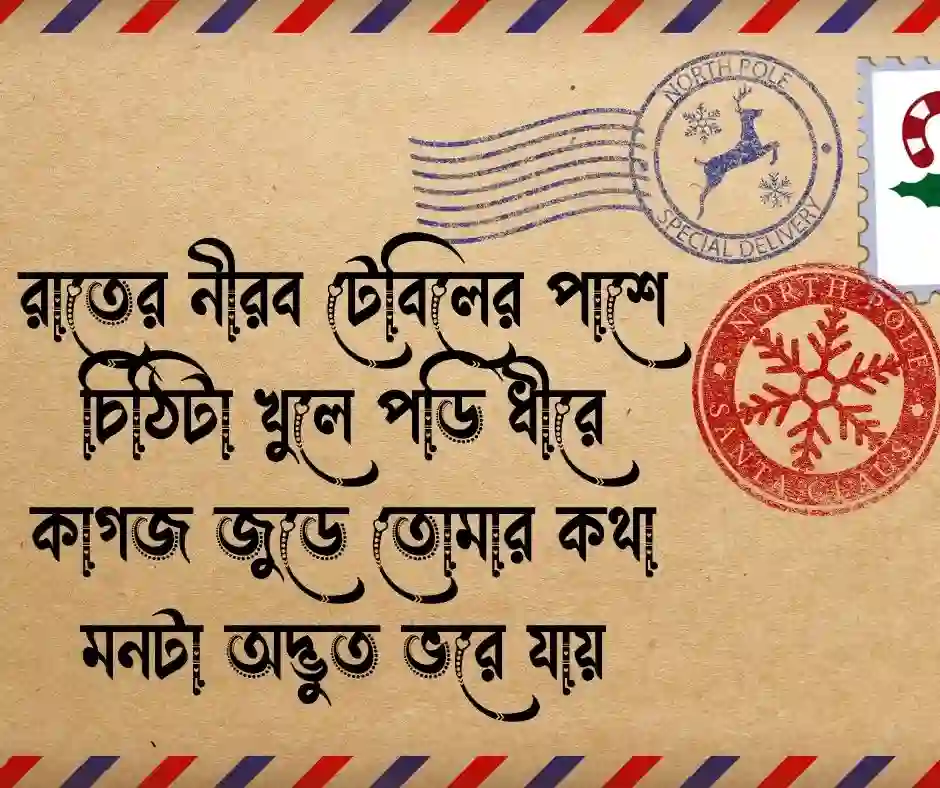 NORTH POLE
SPECIAL DELIVERY
NORTH POLE
SANTA CLAUS
রাতের নীরব টেবিলের পাশে
চিঠিটা খুলে পডি ধীরে
কাগজ জুডে তোমার কথা
মনটা অদ্ভুত ভরে যায়